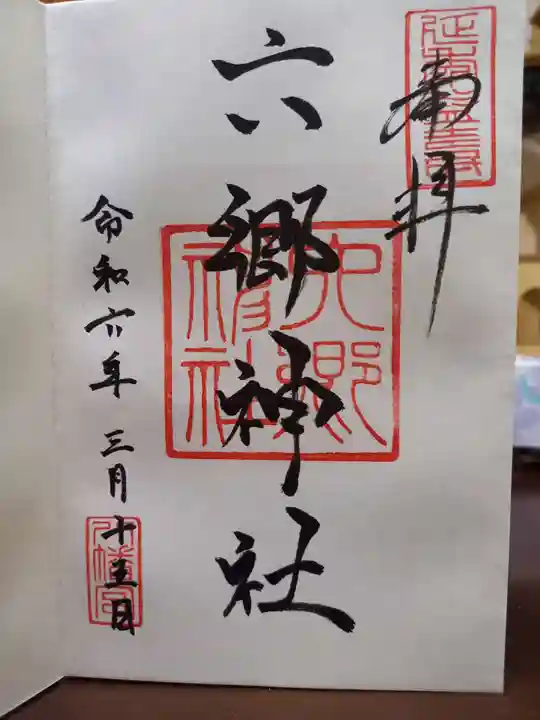 奉拝
六郷神社
六郷神社
令和六年 三月十五日
八幡宮